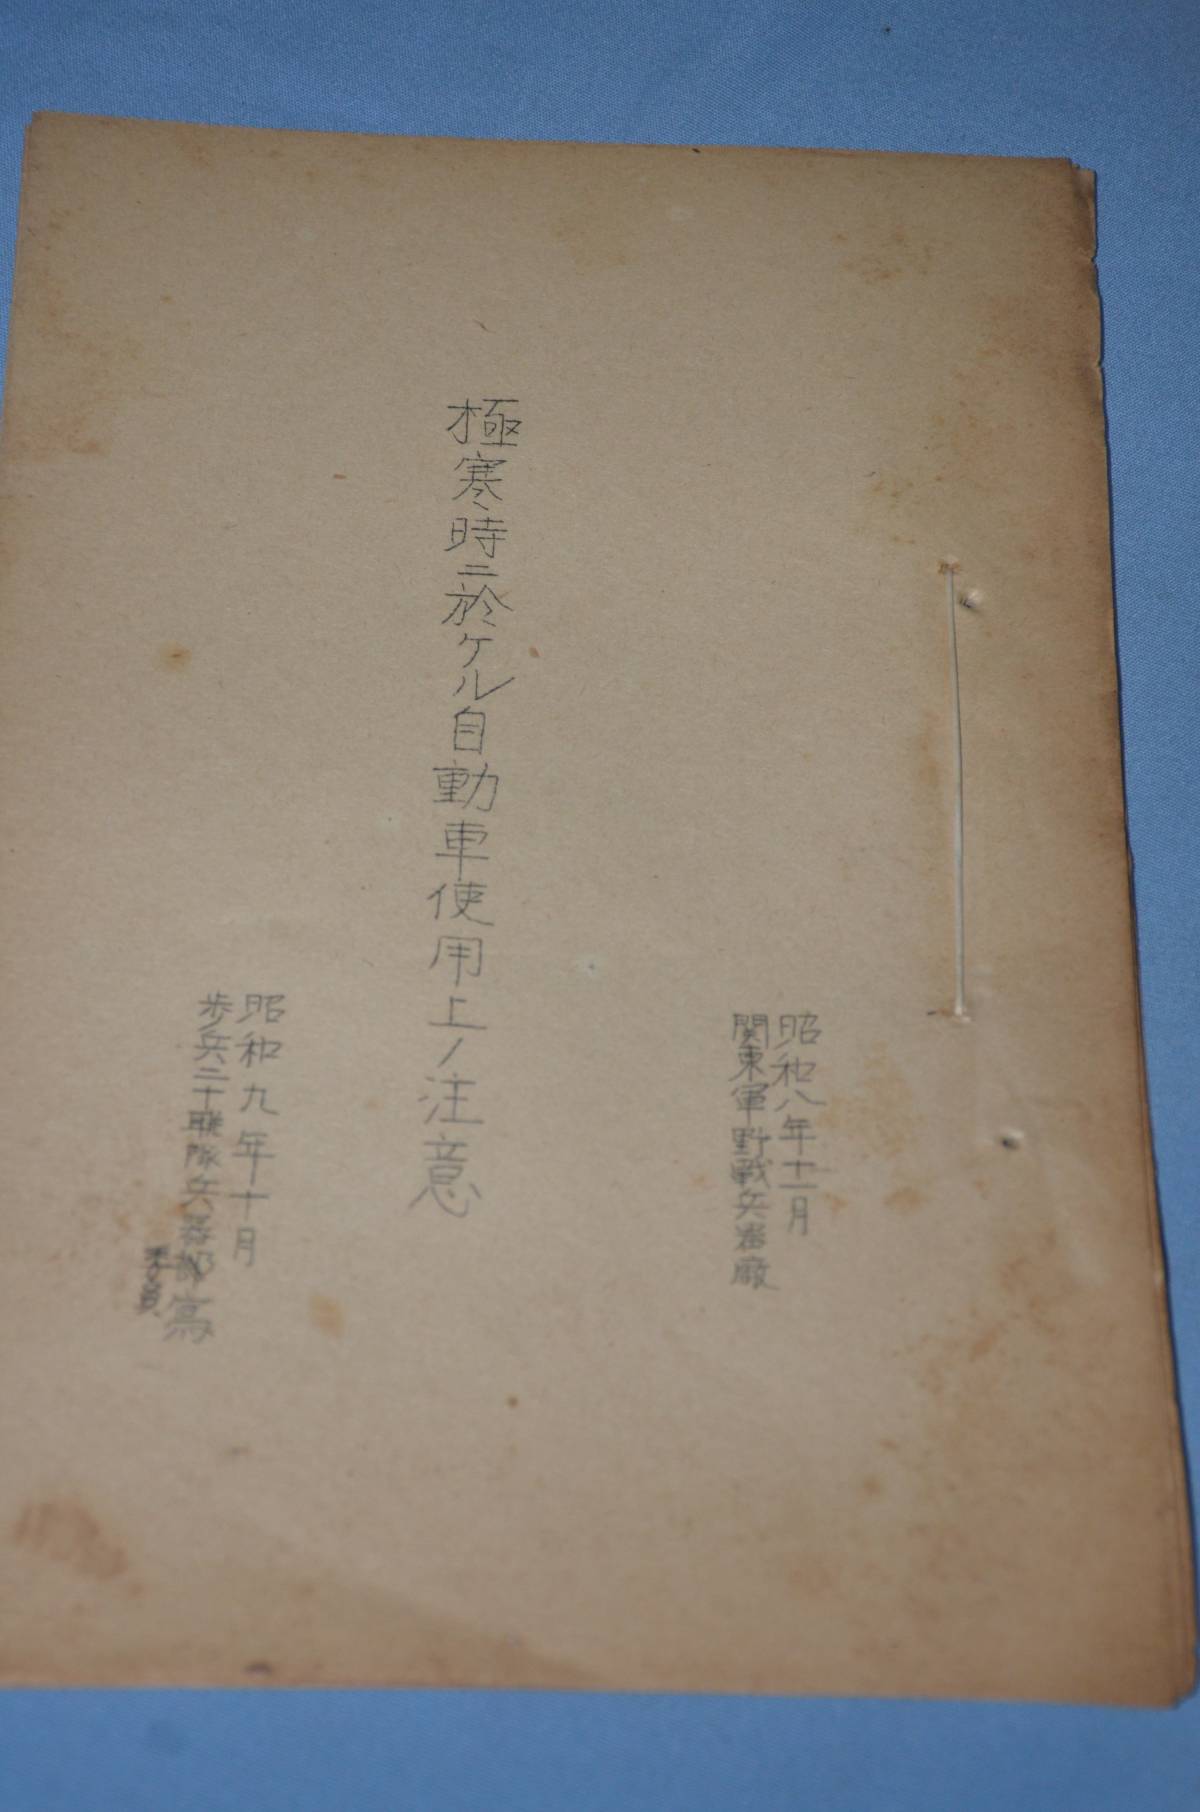 昭和八年十一月
関東軍野戦兵器廠
極寒時ニ於ケル自動車使用上ノ注意
昭和九年十月
歩兵二十聯隊兵器部寫
委員